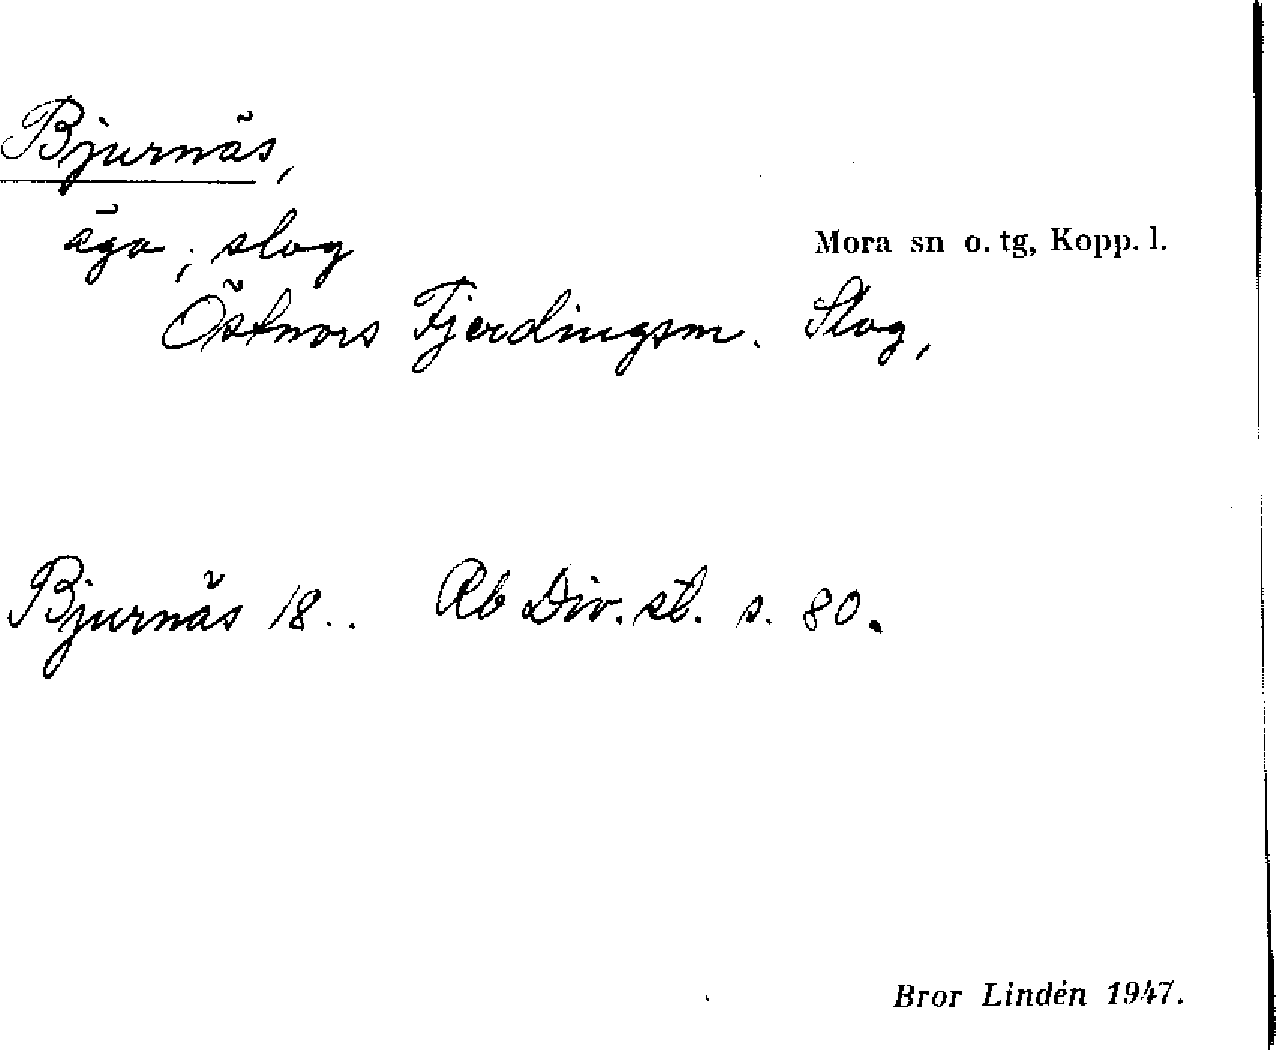 Bjurnäs,
äga; slog
Mora sn o. tg, Kopp. l.
Östnors Fjerdingsm. Slog,
Bjurnäs 18.. Rb Div. st. s. 80.
Bror Lindén 1947.